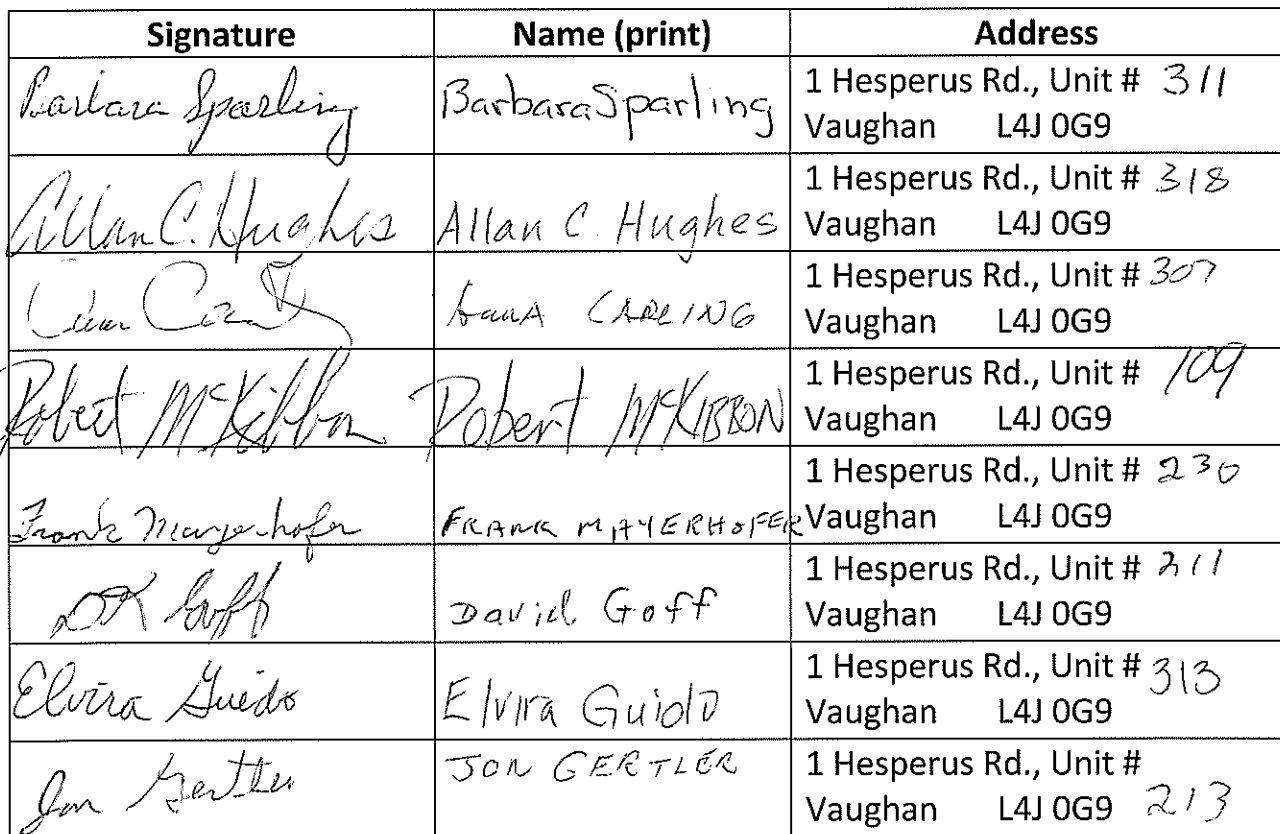 Signature Name (print) Address
Barbara Sparling Barbara Sparling 1 Hesperus Rd., Unit # 311
Vaughan L4J 0G9
Allan C. Hughes Allan C. Hughes 1 Hesperus Rd., Unit # 318
Vaughan L4J 0G9
CARLING 1 Hesperus Rd., Unit # 307
Vaughan L4J 0G9
Robert McKibbon Robert McKIBBON 1 Hesperus Rd., Unit # 109
Vaughan L4J 0G9
Frank Mayerhofer FRANK MAYERHOFER 1 Hesperus Rd., Unit # 230
Vaughan L4J 0G9
DK Goff David Goff 1 Hesperus Rd., Unit # 211
Vaughan L4J 0G9
Elvira Guido Elvira Guido 1 Hesperus Rd., Unit # 313
Vaughan L4J 0G9
Jon Gertler JON GERTLER 1 Hesperus Rd., Unit #
Vaughan L4J 0G9 213